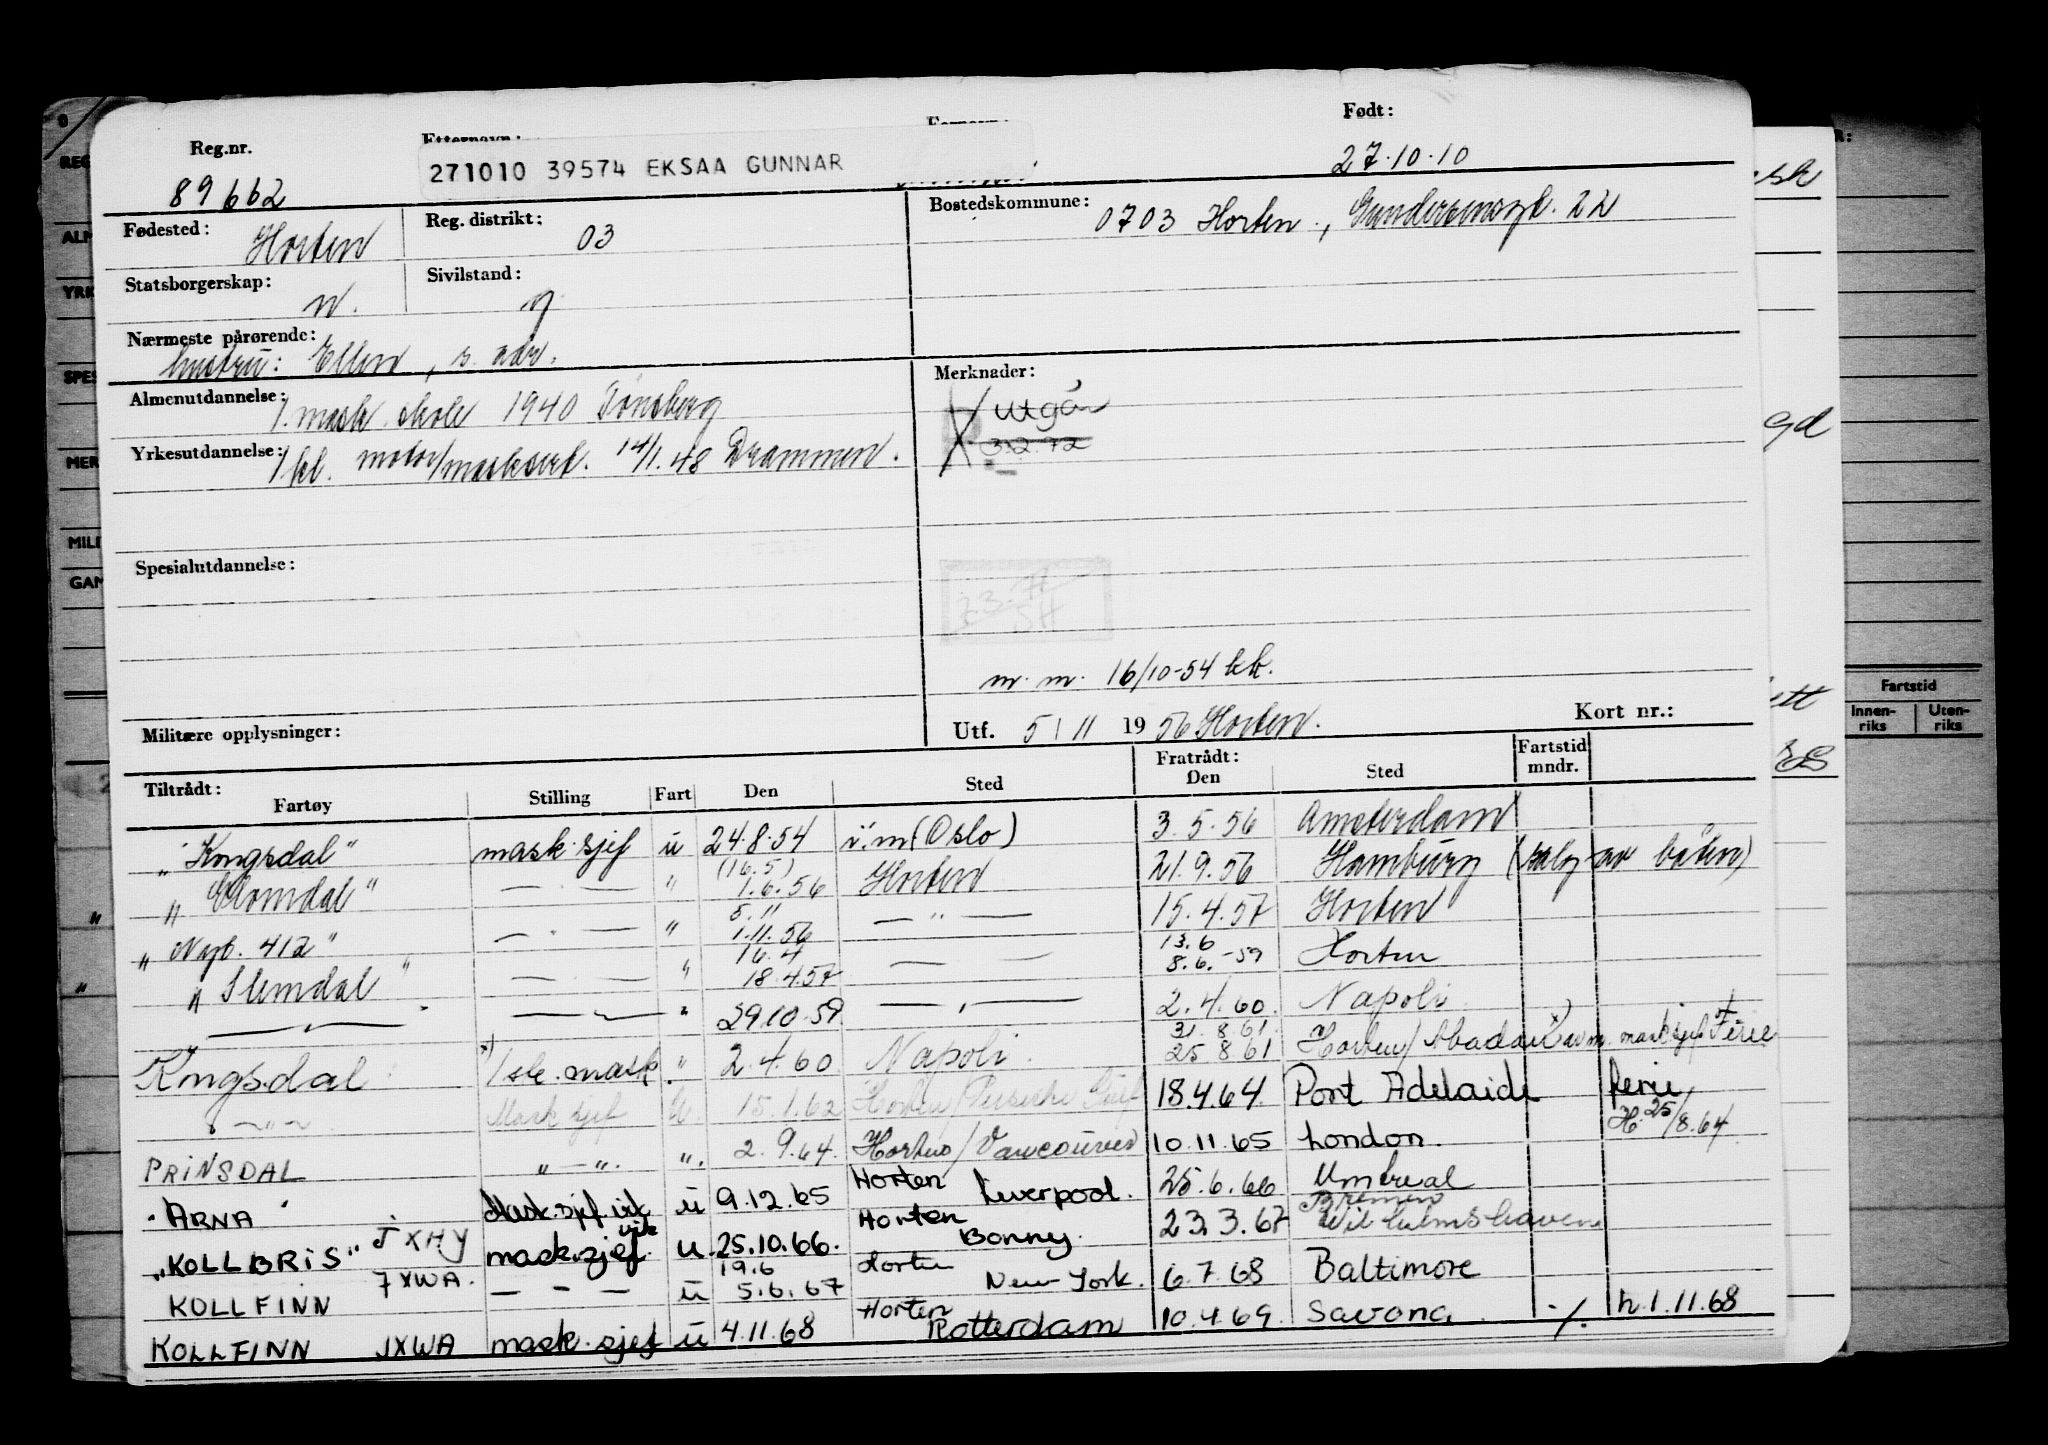 Reg.nr.
Født:
89662
271010 39574 EKSAA GUNNAR
27.10.10
Fødested: Horten
Reg. distrikt: 03
Bostedskommune: 0703 Horten, 22
Statsborgerskap: n.
Sivilstand: g
Nærmeste pårørende: hustru: Ellen, s. adr.
Merknader:
Almenutdannelse: 1. mask. skole 1940 Tønsberg
utgår
3.2.72
Yrkesutdannelse: 1 kl. motor/masksert. 14/1.48 Drammen.
Spesialutdannelse:
m. m. 16/10-54
Militære opplysninger:
Utf. 5/11 1956 Horten.
Kort nr.:
Tiltrådt: Fartøy Stilling Fart Den Sted Fratrådt: Den Sted Fartstid mndr.
"Kongsdal" mask.sjef u 24.8.54 (Oslo) 3.5.56 Amsterdam
" " — . — " (16.5) 1.6.56 Horten 21.9.56 Hamburg (salg av båten)
"Nyb. 412" — . — " 5.11 1.11.56 — " — 15.4.57 Horten
"Slemdal" — — " 16.4 18.4.57 — — 13.6 8.6.-59 Horten
— " — — " — " 29.10.59 — " — 2.4.60 Napoli
Kongsdal x) 1ste. mask. " 2.4.60 Napoli. 31.8.61 25.8.61 Horten/Abadan x) av m. mask.sjef Ferie
— " — Mask.sjef u. 15.1.62 Horten/Persiske Gulf 18.4.64 Port Adelaide ferie,
PRINSDAL " — ". ". 2.9.64. Horten/Vancouver 10.11.65 London. H. 25/8.64
"ARNA" Mask.sjef vik u 9.12.65 Horten Liverpool. 25.6.66 Montreal
"KOLLBRIS" JXHY mask.sjef vik u. 25.10.66. Horten Bonny. 23.3.67 Bremen Wilhelmshaven
KOLLFINN JXWA. — — — u 19.6 5.6.67 Horten New York. 6.7.68 Baltimore
KOLLFINN JXWA mask.sjef u 4.11.68 Horten Rotterdam 10.4.69. Savona. ./. h.1.11.68
Fartstid
Innen-riks Uten-riks